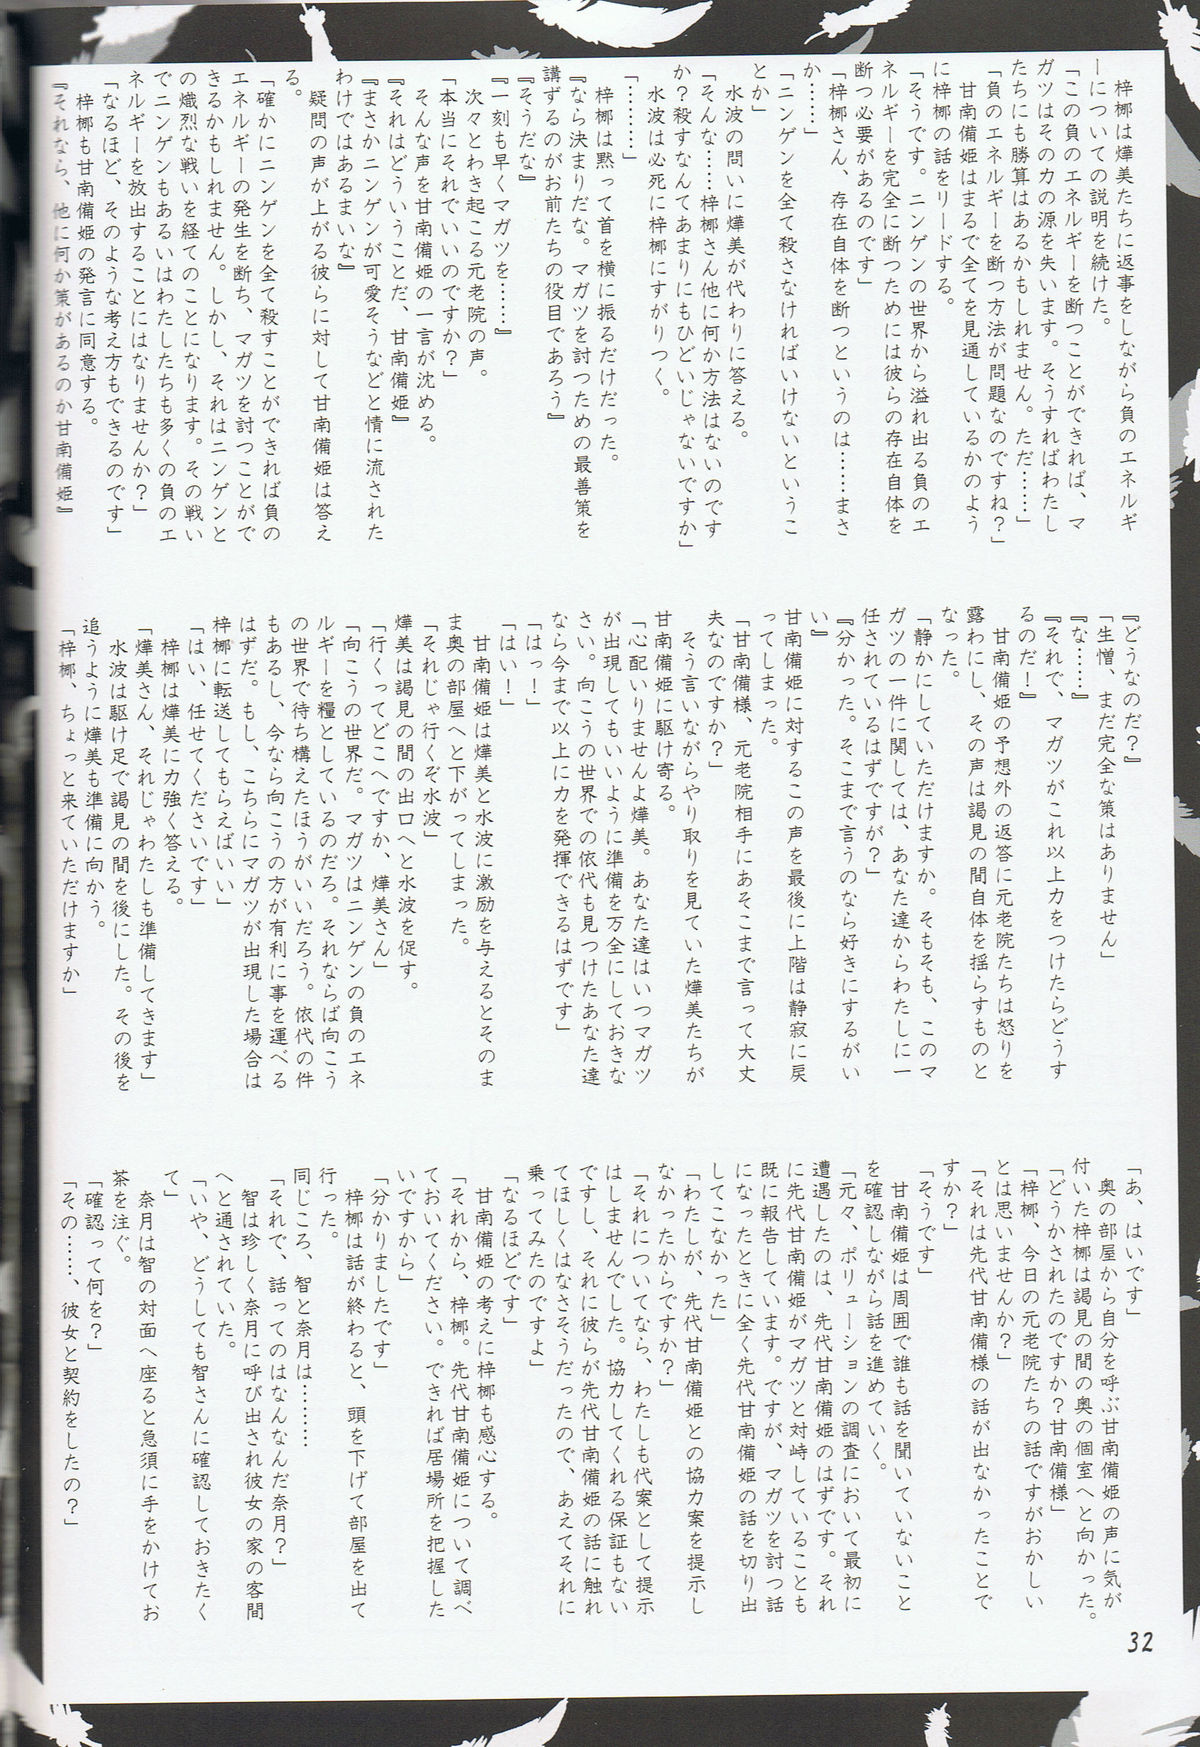 梓梛は燁美たちに返事をしながら負のエネルギ
ーについての説明を続けた。
「この負のエネルギーを断つことができれば、マ
ガツはその力の源を失います。そうすればわたし
たちにも勝算はあるかもしれません。ただ……」
「負のエネルギーを断つ方法が問題なのですね?」
甘南備姫はまるで全てを見通しているかのよう
に梓梛の話をリードする。
「そうです。ニンゲンの世界から溢れ出る負のエ
ネルギーを完全に断つためには彼らの存在自体を
断つ必要があるのです」
「梓梛さん、存在自体を断つというのは……まさ
か……」
「ニンゲンを全て殺さなければいけないというこ
とか」
水波の問いに燁美が代わりに答える。
「そんな……梓梛さん他に何か方法はないのです
か?殺すなんてあまりにもひどいじゃないですか」
水波は必死に梓梛にすがりつく。
「………」
梓梛は黙って首を横に振るだけだった。
『なら決まりだな。マガツを討つための最善策を
講ずるのがお前たちの役目であろう』
『そうだな』
『一刻も早くマガツを……』
次々とわき起こる元老院の声。
「本当にそれでいいのですか?」
そんな声を甘南備姫の一言が沈める。
『それはどういうことだ、甘南備姫』
『まさかニンゲンが可愛そうなどと情に流された
わけではあるまいな』
疑問の声が上がる彼らに対して甘南備姫は答え
る。
「確かにニンゲンを全て殺すことができれば負の
エネルギーの発生を断ち、マガツを討つことがで
きるかもしれません。しかし、それはニンゲンと
の熾烈な戦いを経てのことになります。その戦い
でニンゲンもあるいはわたしたちも多くの負のエ
ネルギーを放出することにはなりませんか?」
「なるほど、そのような考え方もできるのです」
梓梛も甘南備姫の発言に同意する。
『それなら、他に何か策があるのか甘南備姫』
『どうなのだ?』
「生憎、まだ完全な策はありません」
『な……』
『それで、マガツがこれ以上力をつけたらどうす
るのだ!』
甘南備姫の予想外の返答に元老院たちは怒りを
露わにし、その声は謁見の間自体を揺らすものと
なった。
「静かにしていただけますか。そもそも、このマ
ガツの一件に関しては、あなた達からわたしに一
任されているはずですが?」
『分かった。そこまで言うのなら好きにするがい
い』
甘南備姫に対するこの声を最後に上階は静寂に戻
ってしまった。
「甘南備様、元老院相手にあそこまで言って大丈
夫なのですか?」
そう言いながらやり取りを見ていた燁美たちが
甘南備姫に駆け寄る。
「心配いりませんよ燁美。あなた達はいつマガツ
が出現してもいいように準備を万全にしておきな
さい。向こうの世界での依代も見つけたあなた達
なら今まで以上に力を発揮できるはずです」
「はっ!」
「はい!」
甘南備姫は燁美と水波に激励を与えるとそのま
ま奥の部屋へと下がってしまった。
「それじゃ行くぞ水波」
燁美は謁見の間の出口へと水波を促す。
「行くってどこへですか、燁美さん」
「向こうの世界だ。マガツはニンゲンの負のエネ
ルギーを糧としているのだろ。それならば向こう
の世界で待ち構えたほうがいいだろう。依代の件
もあるし、今なら向こうの方が有利に事を運べる
はずだ。もし、こちらにマガツが出現した場合は
梓梛に転送してもらえばいい」
「はい、任せてくださいです」
梓梛は燁美に力強く答える。
「燁美さん、それじゃわたしも準備してきます」
水波は駆け足で謁見の間を後にした。その後を
追うように燁美も準備に向かう。
「梓梛、ちょっと来ていただけますか」
「あ、はいです」
奥の部屋から自分を呼ぶ甘南備姫の声に気が
付いた梓梛は謁見の間の奥の個室へと向かった。
「どうかされたのですか?甘南備様」
「梓梛、今日の元老院たちの話ですがおかしい
とは思いませんか?」
「それは先代甘南備様の話が出なかったことで
すか?」
「そうです」
甘南備姫は周囲で誰も話を聞いていないこと
を確認しながら話を進めていく。
「元々、ポリューションの調査において最初に
遭遇したのは、先代甘南備姫のはずです。それ
に先代甘南備姫がマガツと対峙していることも
既に報告しています。ですが、マガツを討つ話
になったときに全く先代甘南備姫の話を切り出
してこなかった」
「わたしが、先代甘南備姫との協力案を提示し
なかったからですか?」
「それについてなら、わたしも代案として提示
はしませんでした。協力してくれる保証もない
ですし、それに彼らが先代甘南備姫の話に触れ
てほしくはなさそうだったので、あえてそれに
乗ってみたのですよ」
「なるほどです」
甘南備姫の考えに梓梛も感心する。
「それから、梓梛。先代甘南備姫について調べ
ておいてください。できれば居場所を把握した
いですから」
「分かりましたです」
梓梛は話が終わると、頭を下げて部屋を出て
行った。
同じころ、智と奈月は………
「それで、話ってのはなんなんだ奈月?」
智は珍しく奈月に呼び出され彼女の家の客間
へと通されていた。
「いや、どうしても智さんに確認しておきたく
て」
奈月は智の対面へ座ると急須に手をかけてお
茶を注ぐ。
「確認って何を?」
「その……、彼女と契約をしたの?」
32